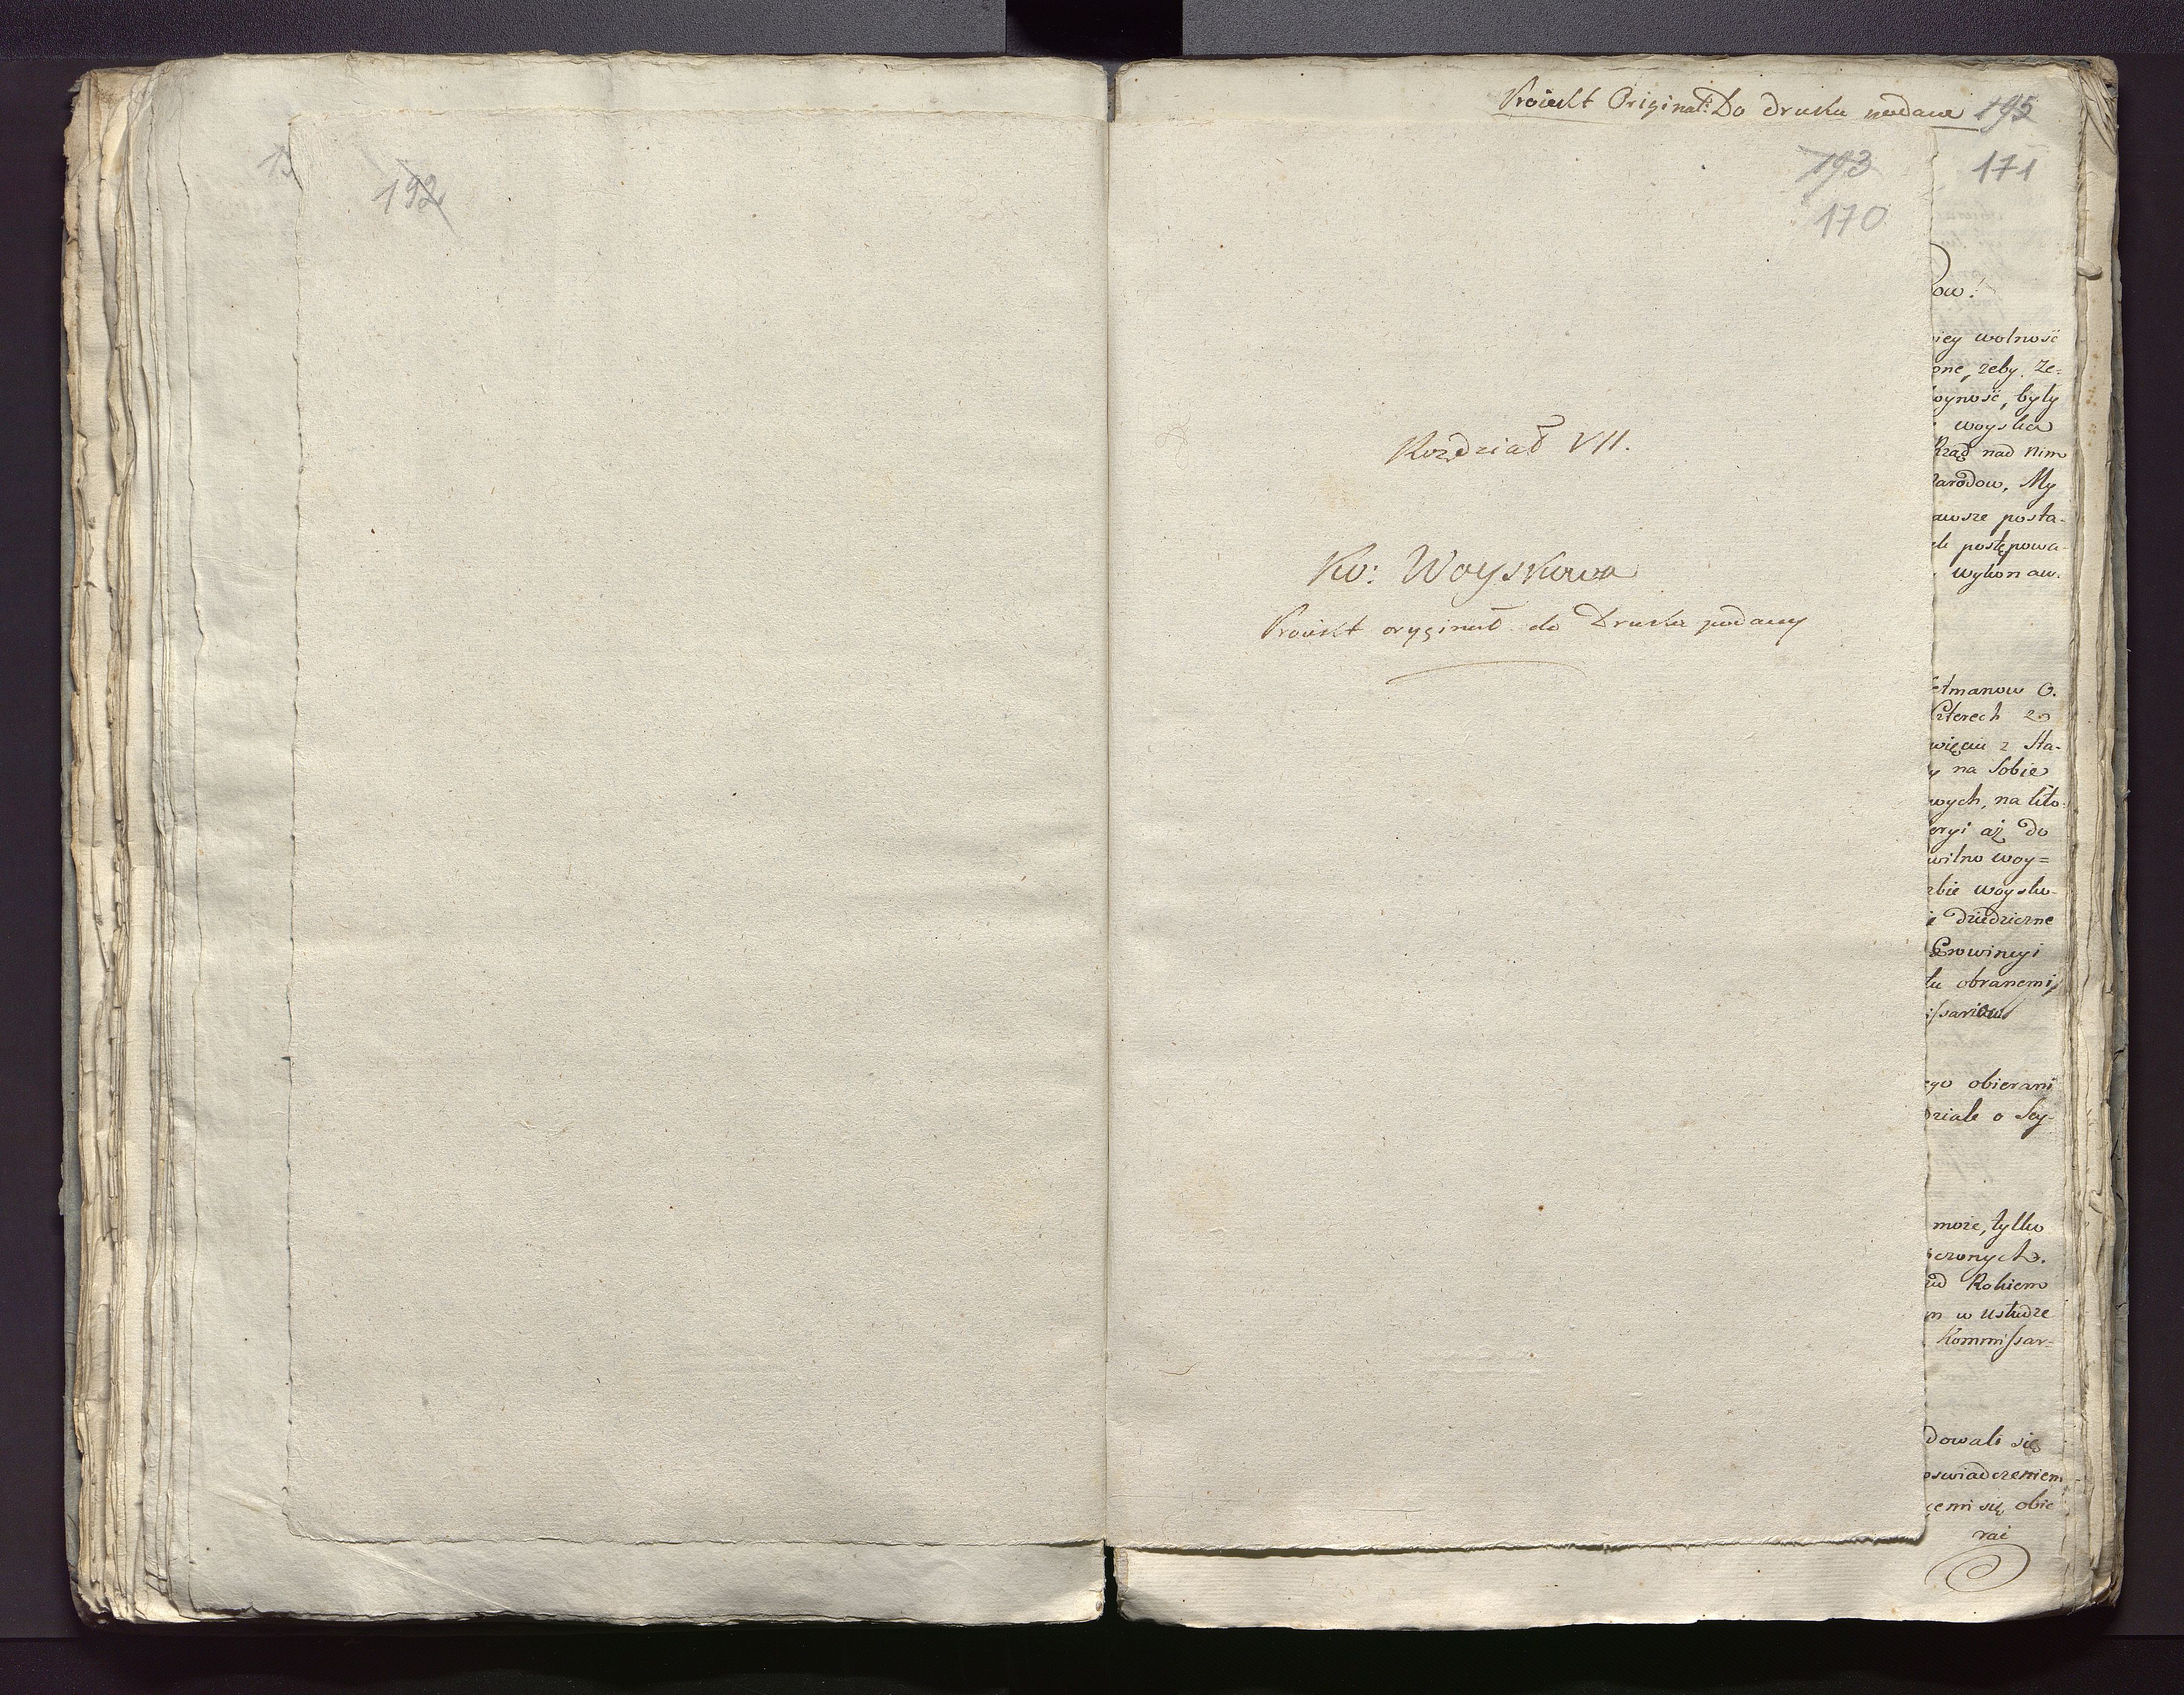 192
Proiekt Original: Do druku podane 195
193
171
170
Rozdział VII.
Ko: Woyskowa
Proiekt oryginał do Druku podany
ow!
iey wolność
one, żeby Ze=
oyność, były
woyska
Rząd nad nim
Narodow, My
awsze posta-
postępowa-
wykonaw.
etmanow O.
Czterech z
więciu z Sta-
y na Sobie
wych, na kto-
eryi aż do
wilno woy=
zbie woysko-
i dziedziczne
Prowincyi
tu obranemi,
issariow
ego obierani
dziale o Sey-
może, tylko
czonych.
ed Rokiem
m w usłudze
Kommissar=
dowali się
oswiadczeniem
cemi się, obie
rać